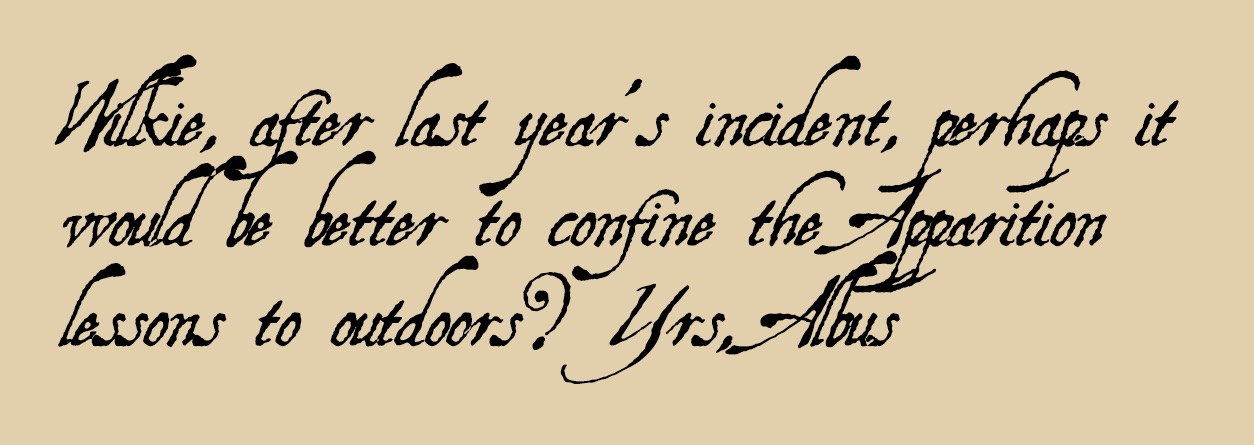 Wilkie, after last year's incident, perhaps it
would be better to confine the Apparition
lessons to outdoors? Yrs, Albus